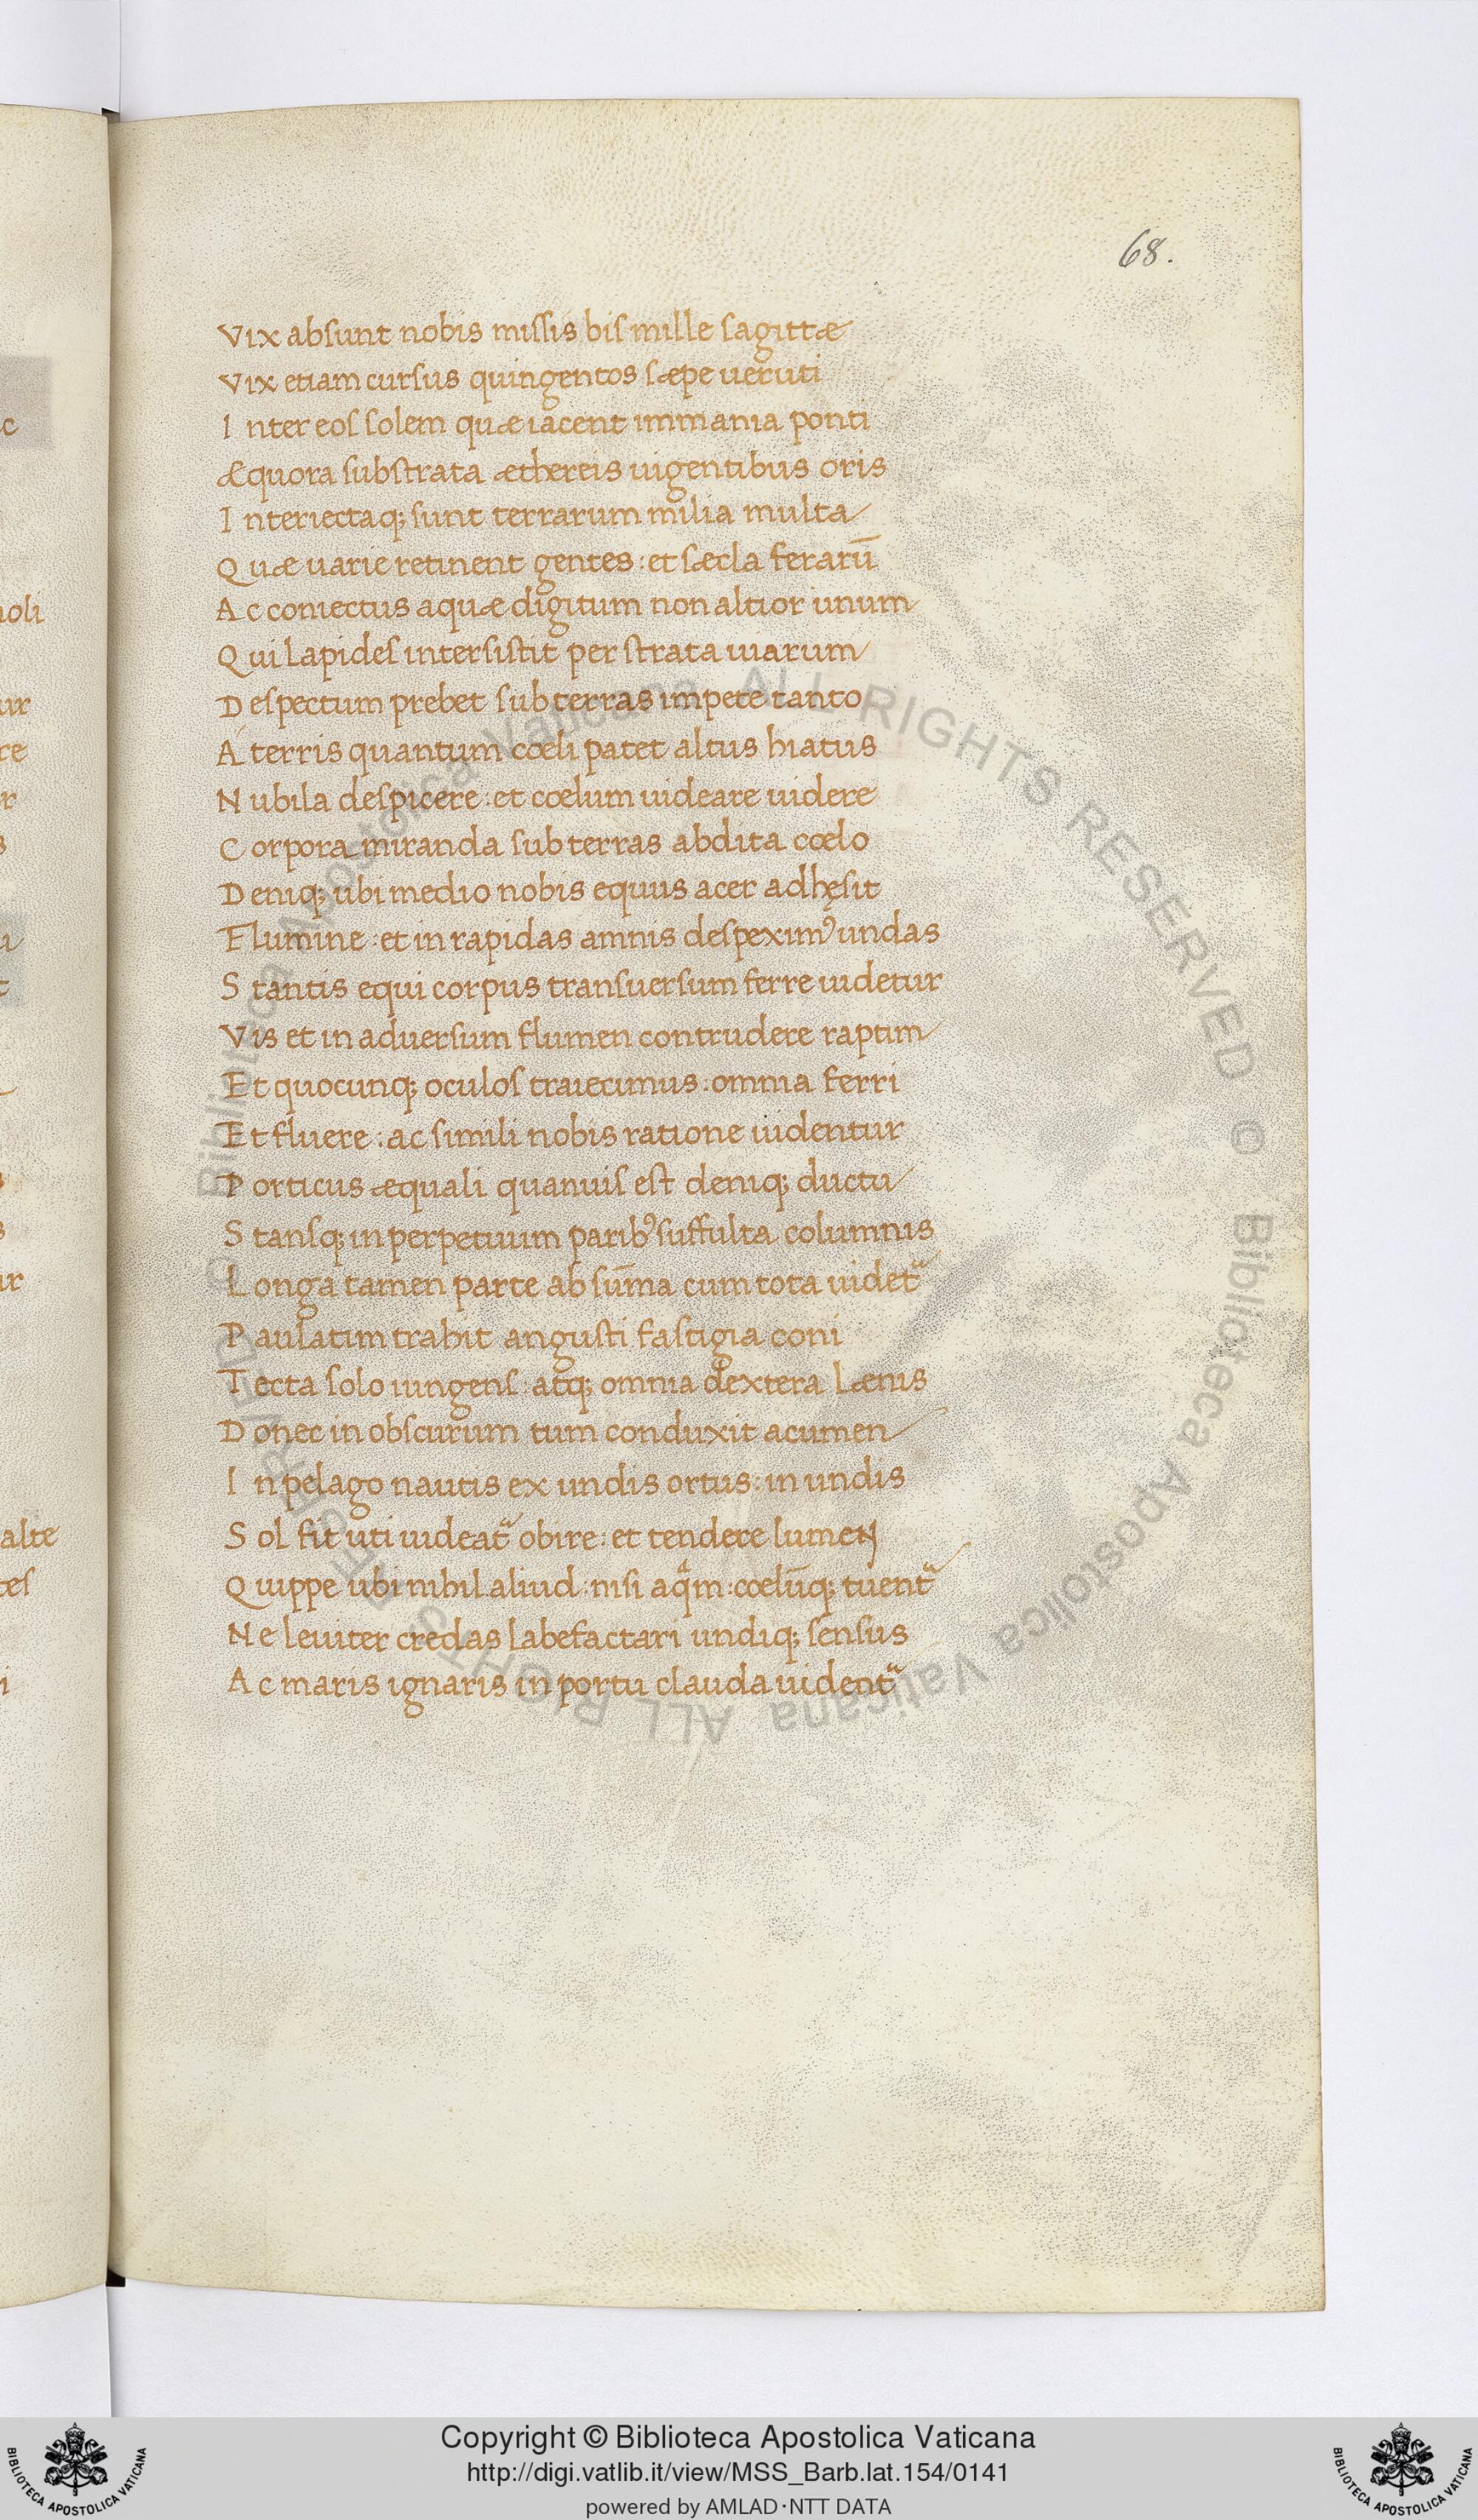 68.
Vix absunt nobis missis bis mille sagittæ
Vix etiam cursus quingentos sæpe ueruti
Inter eos solem quæ iacent immania ponti
Æquora substrata æthereis uigentibus oris
Interiectaq; sunt terrarum milia multa
Quæ uarie retinent gentes: et sæcla ferarū
Ac coniectus aquæ digitum non altior unum
Qui lapides intersistit per strata uiarum
Despectum prebet sub terras impete tanto
A terris quantum cœli patet altus hiatus
Nubila despicere: et cœlum uideare uidere
Corpora miranda sub terras abdita cœlo
Deniq; ubi medio nobis equus acer adhęsit
Flumine: et in rapidas amnis despeximꝰ undas
Stantis equi corpus transuersum ferre uidetur
Vis et in aduersum flumen contrudere raptim
Et quocunq; oculos traiecimus: omnia ferri
Et fluere: ac simili nobis ratione uidentur
Porticus æquali quanuis est deniq; ductu
Stansq; in perpetuum paribꝰ suffulta columnis
Longa tamen parte ab sūma cum tota uidetᷓ
Paulatim trahit angusti fastigia coni
Tecta solo iungens: atq; omnia dextera lænis
Donec in obscurum tum conduxit acumen
In pelago nautis ex undis ortus: in undis
Sol fit uti uideatᷓ obire: et tendere lumen
Quippe ubi nihil aliud: nisi aqᷓm: cœlūq; tuentᷓ
Ne leuiter credas labefactari undiq; sensus
Ac maris ignaris in portu clauda uidentᷓ
c
noli
ur
re
r
s
u
t
s
s
ur
alte
tes
i
Biblioteca Apostolica Vaticana ALL RIGHTS RESERVED © Biblioteca Apostolica Vaticana ALL RIGHTS RESERVED ©
BIBLIOTECA APOSTOLICA VATICANA
Copyright © Biblioteca Apostolica Vaticana
http://digi.vatlib.it/view/MSS_Barb.lat.154/0141
powered by AMLAD·NTT DATA
BIBLIOTECA APOSTOLICA VATICANA